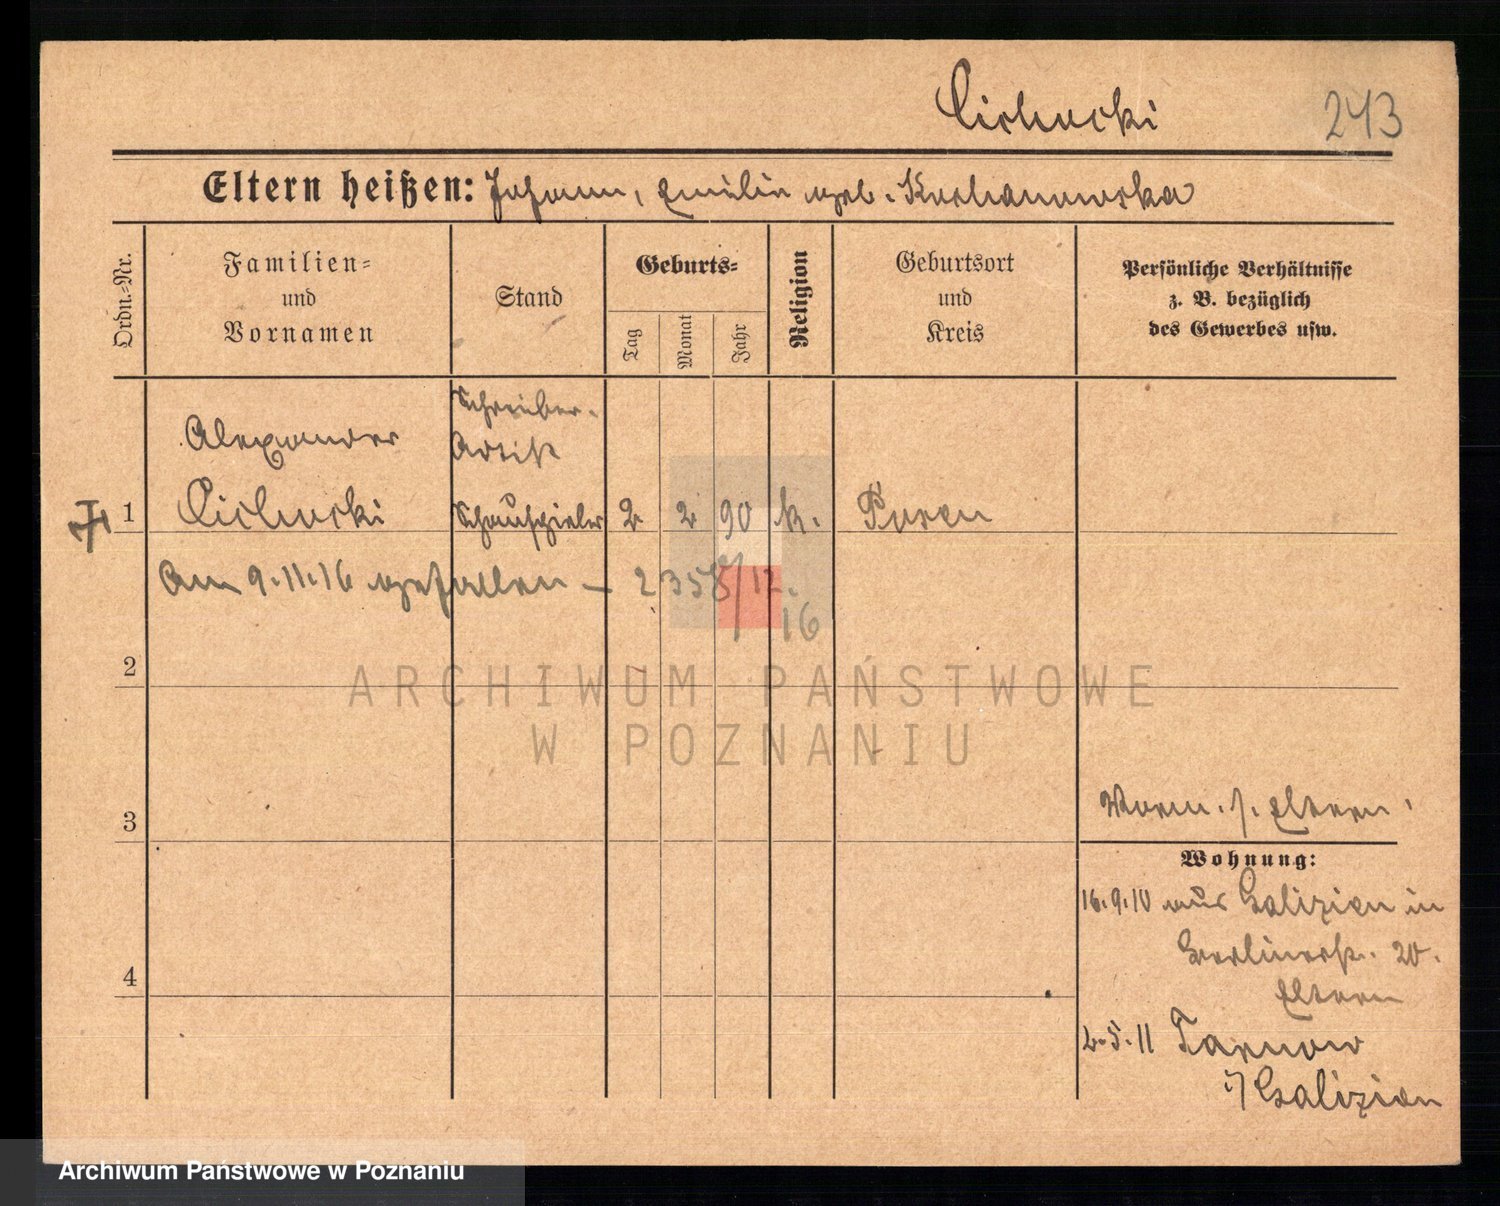 Cichocki 243
Eltern heißen: Johann, Emilie geb. Kochanowska
Ordn.-Nr.
Familien-
und
Vornamen
Stand
Geburts-
Tag
Monat
Jahr
Religion
Geburtsort
und
Kreis
Persönliche Verhältnisse
z. B. bezüglich
des Gewerbes usw.
Schreiber.
Alexander Artist
1 Cichocki Schauspieler 2 2 90 k. Posen
Am 9.11.16 gefallen – 2358/12.
16
2
ARCHIWUM PAŃSTWOWE
W POZNANIU
3
Vorm. s. Eltern.
Wohnung:
16.9.10 aus Galizien in
Berlinerstr. 20.
4
Eltern
2.5.11 Tarnow
i/Galizien
Archiwum Państwowe w Poznaniu